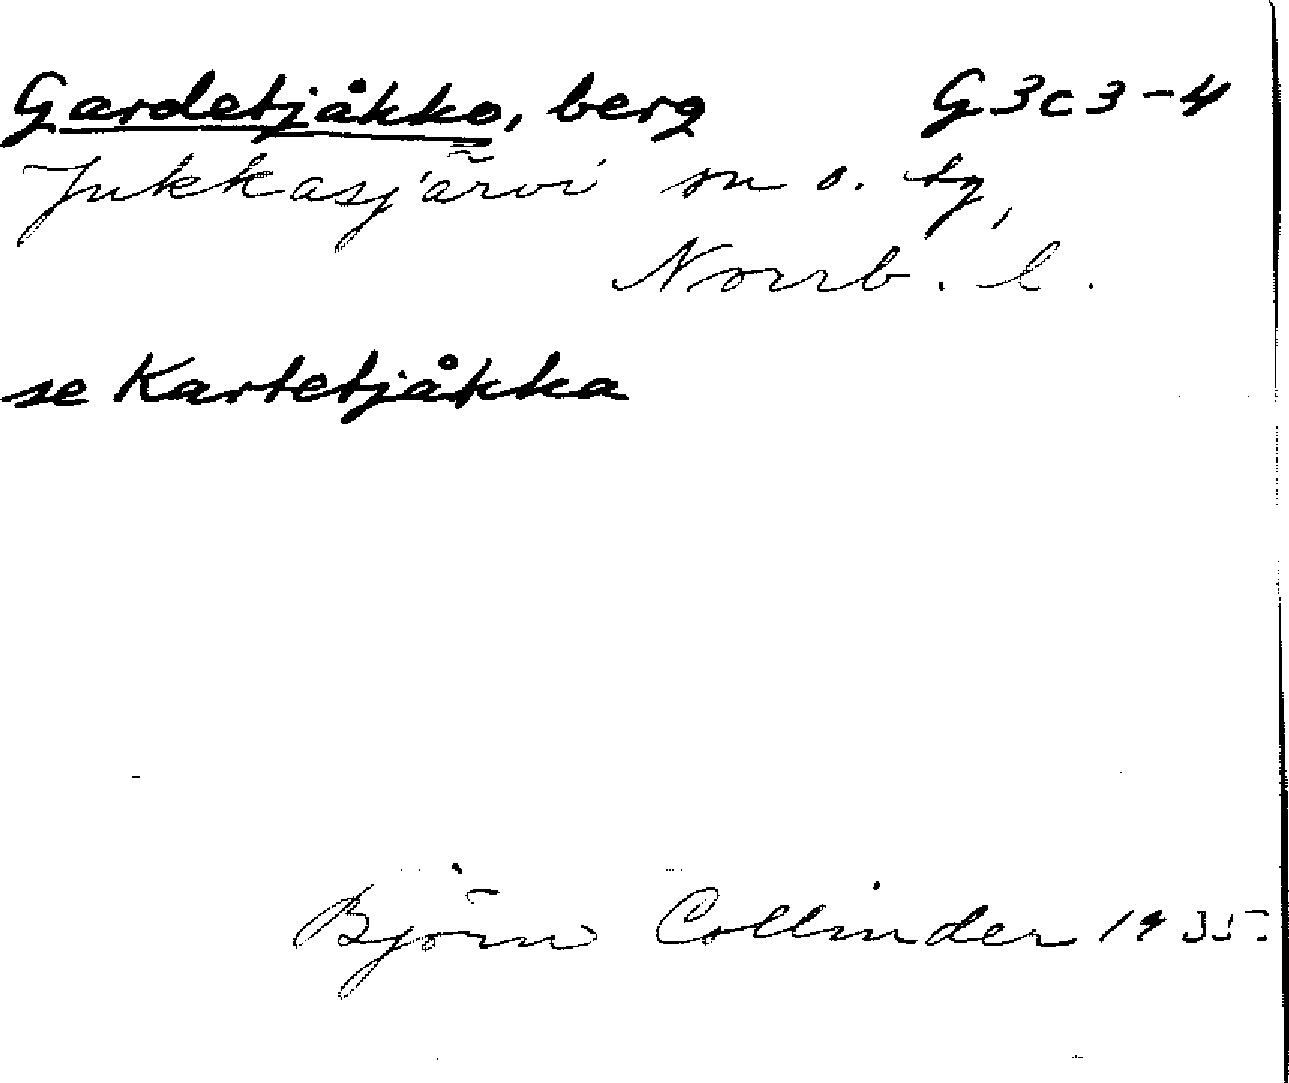 Gardetjåkko, berg G3c3-4
Jukkasjärvi sn o. tg,
Norrb. l.
se Kartetjåkka
Björn Collinder 1935